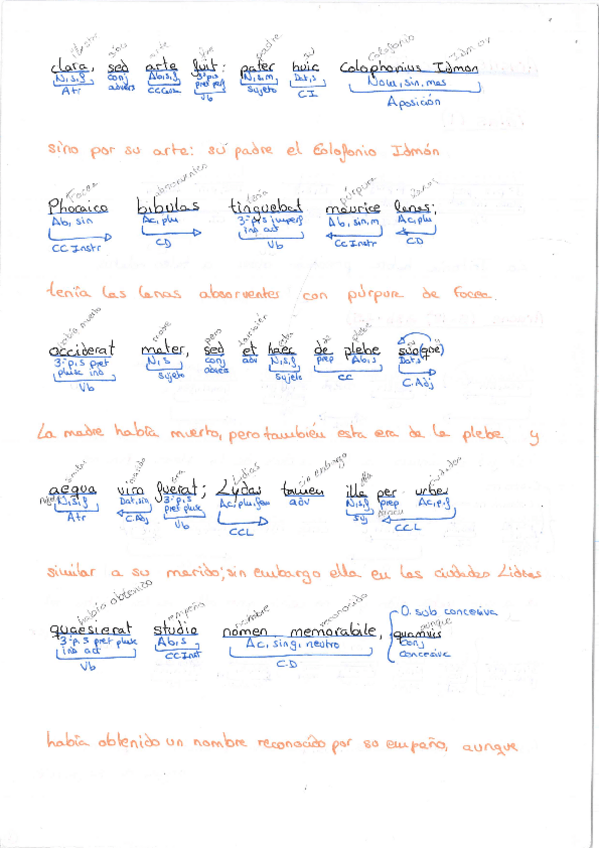 ilustre sino arte fue padre su Colofonio Idmón
clara, sed arte fuit: pater huic Colophonius Idmon
N,s,f conj advers Ab,s,f 3ªp,s pret perf N,s,m Dat,s Nom,sin,mas
Atr CC Causa Vb Sujeto CI Aposición
sino por su arte: su padre el Colofonio Idmón
Focea absorventes tenía púrpura lanas
Phocaico bibulas tinguebat maurice lanas;
Ab,sin Ac,plu 3ªp,s imperf ind act Ab,sin,m Ac,plu
CC Instr CD Vb CC Instr CD
tenía las lanas absorventes con púrpura de Focea.
había muerto madre pero también esta de plebe
acciderat mater, sed et haec de plebe suo(que)
3ªp,s pret pluse ind N,s conj advers adv N,s,f prep Ab,s Dat,s
Vb Sujeto Sujeto CC C.Adj
La madre había muerto, pero también esta era de la plebe y
similar marido era Lidias sin embargo ella ciudades
aequa viro fuerat; Lydas tamen ille per urbes
N,s,f Dat,sin 3ªp,s pret pluse Ac,plu,fem adv N,s,f prep Ac,p,f
Atr C.Adj Vb CCL Suj CCL
similar a su marido; sin embargo ella en las ciudades Lidias
había obtenido empeño nombre reconocido aunque
quaesierat studio nomen memorabile, quamvis
O. sub concesiva
3ªp,s pret pluse ind act Ab,s Ac, sing, neutro conj concesiva
Vb CC Inst C.D
había obtenido un nombre reconocido por su empeño, aunque